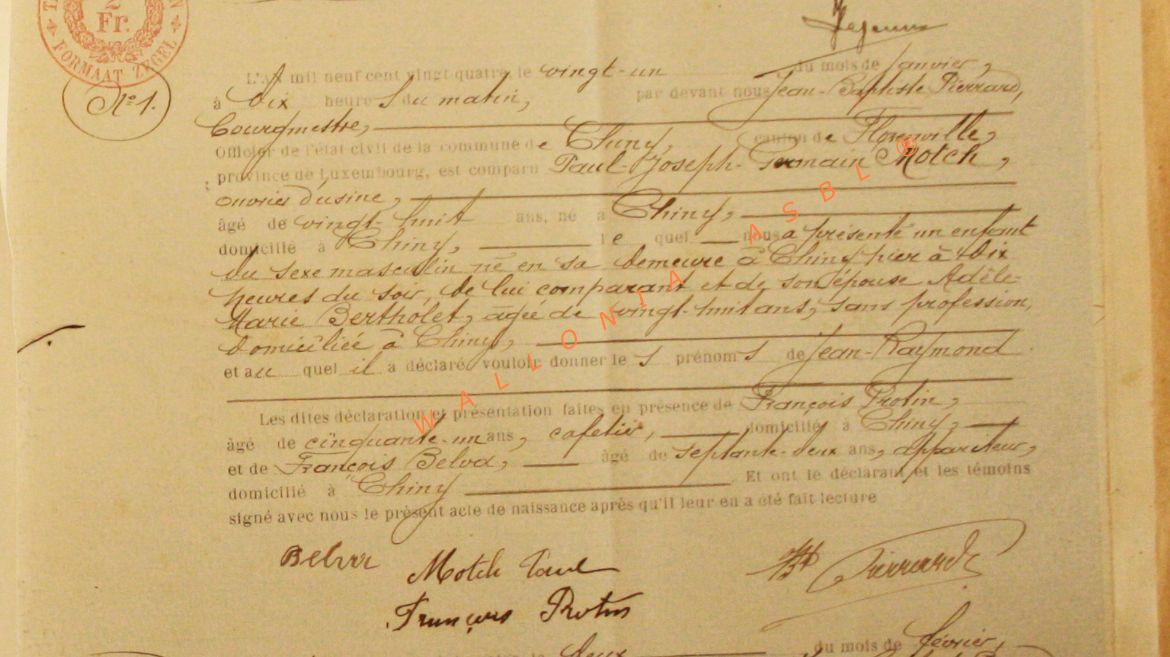 2
Fr.
FORMAAT ZEGEL
N° 1.
L'AN mil neuf cent vingt quatre, le vingt-un du mois de janvier,
à dix heures du matin, par devant nous Jean-Baptiste Pierrard,
bourgmestre,
Officier de l'état civil de la commune de Chiny, canton de Florenville,
province de Luxembourg, est comparu Paul-Joseph-Germain Motch,
ouvrier d'usine,
âgé de vingt-huit ans, né à Chiny,
domicilié à Chiny, le quel nous a présenté un enfant
du sexe masculin né en sa demeure à Chiny hier à dix
heures du soir, de lui comparant et de son épouse Adèle-
Marie Bertholet, agée de vingt-huit ans, sans profession,
domiciliée à Chiny,
et au quel il a déclaré vouloir donner les prénoms de Jean-Raymond
Les dites déclaration et présentation faites en présence de François Protin,
âgé de cinquante-un ans, cafetier, domicilié à Chiny,
et de François Belva, âgé de septante-deux ans, appariteur,
domicilié à Chiny Et ont le déclarant et les témoins
signé avec nous le présent acte de naissance après qu'il leur en a été fait lecture
WALLONIA ASBL ®
Belva Motch Paul Pierrard
François Protin
deux du mois de février,